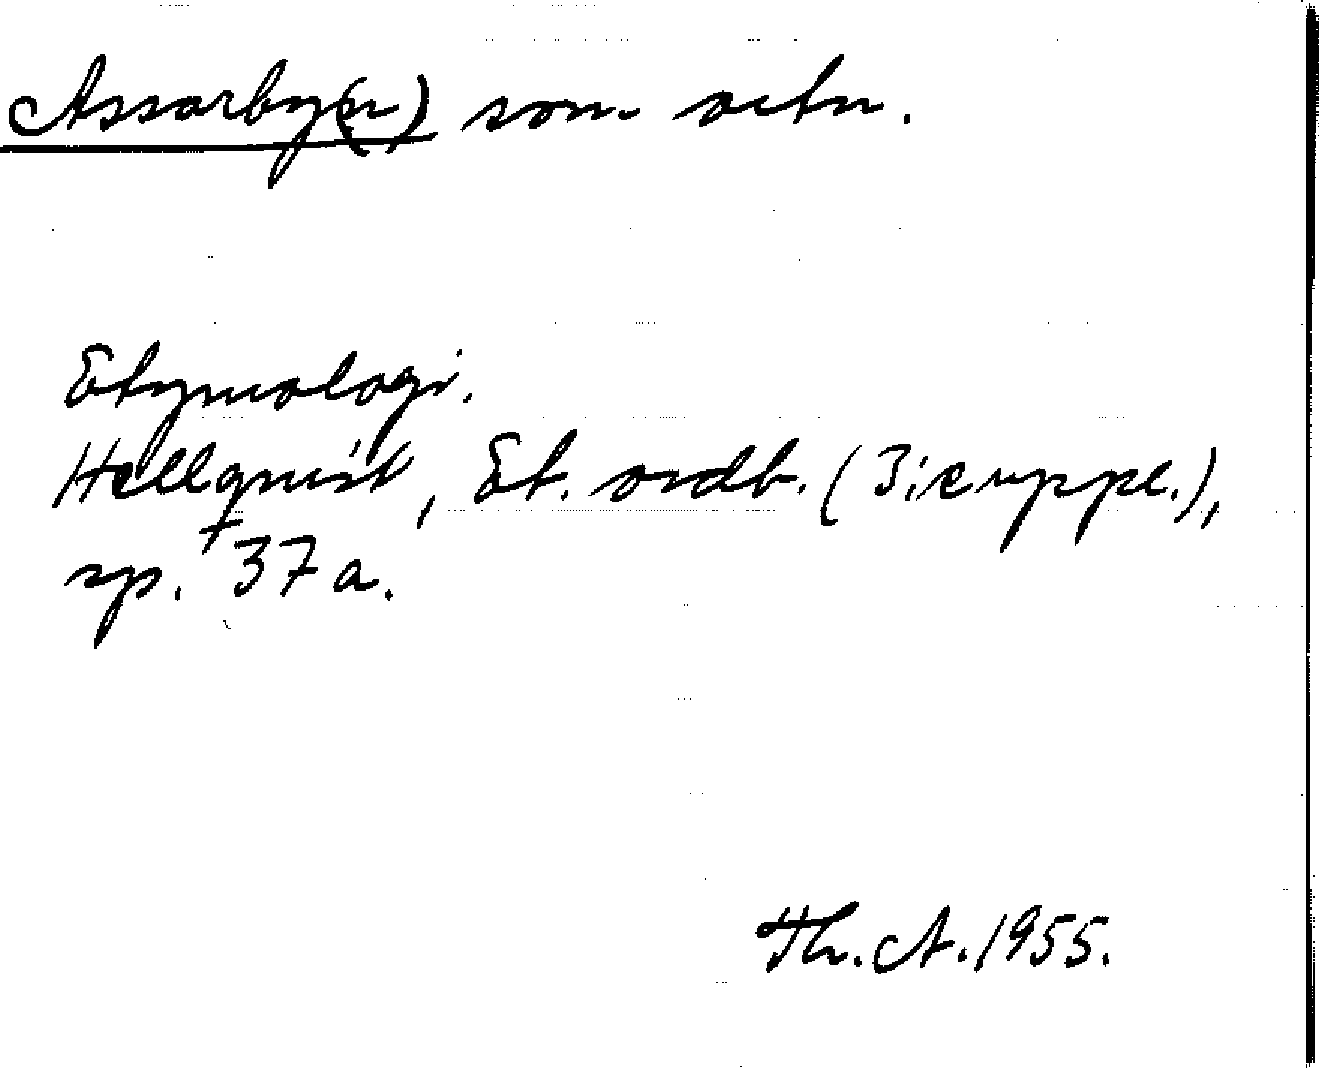 Assarby(n) som ortn.
Etymologi.
Hellquist, Et. ordb. (3: suppl.),
sp. 37 a.
Th. A. 1955.